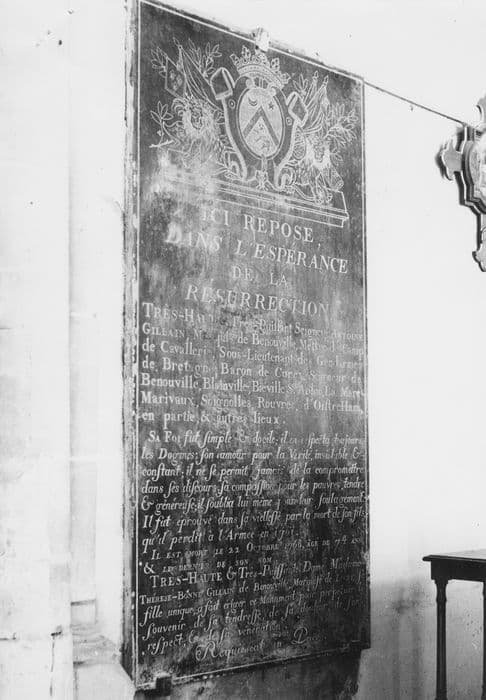 ICI REPOSE,
DANS L'ESPÉRANCE
DE LA
RESURRECTION
TRÈS-HAUT & Très-Puissant Seigneur ANTOINE
GILLAIN Marquis de Benouville, Mestre de Camp
de Cavallerie, Sous-Lieutenant des Gendarmes
de Bretagne, Baron de Seigneur de
Benouville, Blainville Biéville St Aubin La Mare
Marivaux, Soignolles, Rouvres, d'Oistreham,
en partie, & autres lieux.
SA Foi fut simple & docile; il en respecta toujours
les Dogmes; son amour pour la Vérité, inviolable &
constant; il ne se permit jamais de la compromettre
dans ses discours; sa compassion pour les pauvres, tendre
& généreuse; il s'oublia lui même pour leur soulagement.
Il fut éprouvé dans sa vieillesse par la mort de son fils
qu'il perdit à l'Armée en
IL EST MORT LE 22 OCTOBRE AGÉ DE 74 ANS
& LE DERNIER DE SON NOM
TRÈS-HAUTE & Très-Puissante Dame Madame
THÉRÈSE-BONNE GILLAIN de Benouville, Marquise de
fille unique, a fait eriger ce Monument pour perpétuer le
souvenir de sa tendresse, de sa douleur, de son
respect, & de sa vénération.
Requiescat in Pace